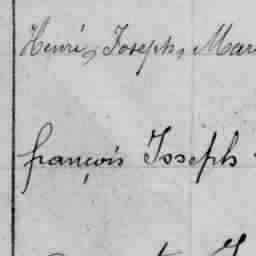 Henri, Joseph, Mar
françois Joseph